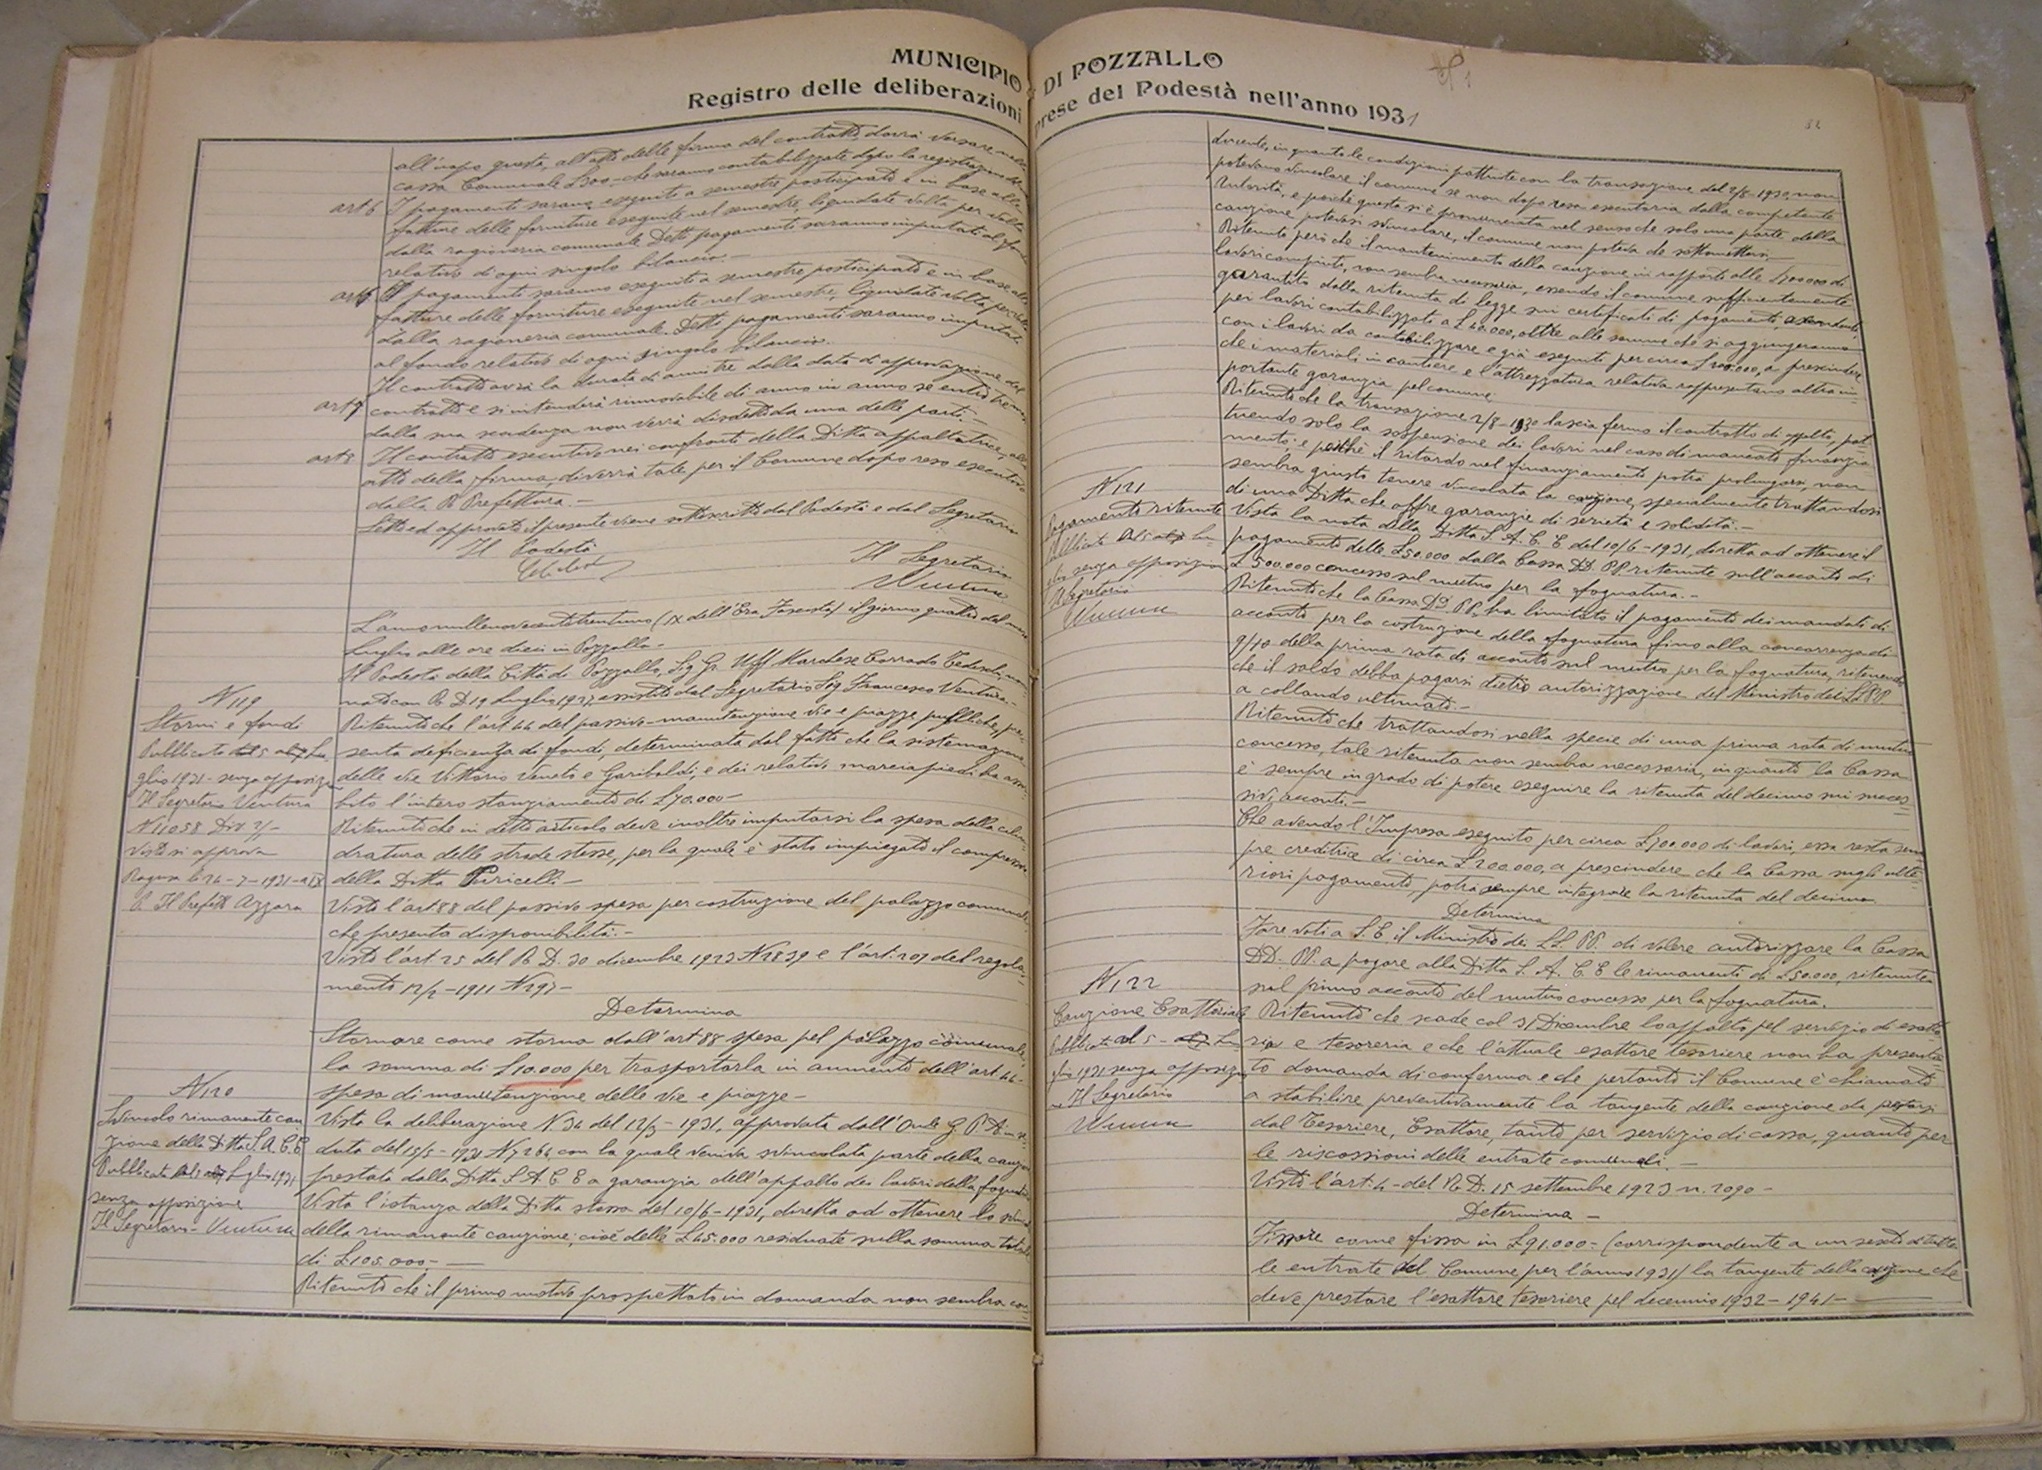 MUNICIPIO DI POZZALLO
Registro delle deliberazioni prese del Podestà nell'anno 1931
52
all'uopo questa, all'atto della firma del contratto dovrà versare nella
cassa Comunale £300 - che saranno contabilizzate dopo la registrazione
art 6 I pagamenti saranno eseguiti a semestre posticipato e in base alle
fatture delle forniture eseguite nel semestre, liquidate volta per volta
dalla ragioneria comunale. Detti pagamenti saranno imputati al fondo
relativo di ogni singolo bilancio. -
art 6 I pagamenti saranno eseguiti a semestre posticipato e in base alle
fatture delle forniture eseguite nel semestre, liquidate volta per volta
dalla ragioneria comunale. Detti pagamenti saranno imputati
al fondo relativo di ogni singolo bilancio.
art 7 Il contratto avrà la durata di anni tre dalla data di approvazione del
contratto e si intenderà rinnovabile di anno in anno se entro tre mesi
dalla sua scadenza non verrà disdetto da una delle parti. -
art 8 Il contratto esecutivo nei confronti della Ditta appaltatrice, all'
atto della firma, diverrà tale per il Comune dopo reso esecutorio
dalla R. Prefettura. -
Letto ed approvato il presente viene sottoscritto dal Podestà e dal Segretario
Il Podestà
Il Segretario
L'anno millenovecentotrentuno (IX dell'Era Fascista) il giorno quattro del mese
Luglio alle ore dieci in Pozzallo -
Il Podestà della Città di Pozzallo, Sig Gr. Uff Marchese Corrado Tedeschi, no-
minato con R D 19 Luglio 1927, assistito dal Segretario Sig Francesco Ventura. -
N 119
Storni e fondi
Pubblicato dal 5 al Lu
glio 1931 - senza opposizione
Il Segretario Ventura
N 11058 Div 2/-
Visto si approva
Ragusa li 26-7-1931-a IX
P. Il Prefetto Azzara
Ritenuto che l'art 44 del passivo - manutenzione vie e piazze pubbliche, pre-
senta deficienza di fondi, determinata dal fatto che la sistemazione
delle vie Vittorio Veneto e Garibaldi, e dei relativi marciapiedi ha assor-
bito l'intero stanziamento di £70.000 -
Ritenuto che in detto articolo deve inoltre imputarsi la spesa della cilin-
dratura delle strade stesse, per la quale è stato impiegato il compressore
della Ditta Puricelli -
Visto l'art 88 del passivo spesa per costruzione del palazzo comunale
che presenta disponibilità. -
Visto l'art 25 del R. D. 30 dicembre 1923 N 2839 e l'art. 207 del regola-
mento 12/2 - 1911 N 297 -
Determina
Stornare come storna dall'art 88 spesa pel palazzo comunale,
la somma di £10.000 per trasportarla in aumento dell'art 44 -
spesa di manutenzione delle vie e piazze -
N 120
Svincolo rimanente cau
zione della Ditta S.A.C.E
Pubblicata dal 5 al Luglio 1931
senza opposizione
Il Segretario - Ventura
Vista la deliberazione N 34 del 12/3 - 1931, approvata dall'On.le G. P. A - se-
duta del 15/5 - 1931 N 7264 con la quale veniva svincolata parte della cauzione
prestata dalla Ditta S A C E a garanzia dell'appalto dei lavori della fognatura
Vista l'istanza della Ditta stessa del 10/6 - 1931, diretta ad ottenere lo svincolo
della rimanente cauzione, cioè delle £45.000 residuate sulla somma totale
di £105.000. -
Ritenuto che il primo motivo prospettato in domanda non sembra con-
ducente, in quanto le condizioni pattuite con la transazione del 2/8 - 1930, non
potevano vincolare il comune se non dopo resa esecutoria dalla competente
Autorità, e poichè questa si è pronunciata nel senso che solo una parte della
cauzione potevasi svincolare, il comune non poteva che sottomettersi. -
Ritenuto però che il mantenimento della cauzione in rapporto alle £700000 di
lavori compiuti, non sembra necessaria, essendo il comune sufficientemente
garantito dalla ritenuta di legge sui certificati di pagamento, ascendente
pei lavori contabilizzati a £40.000, oltre alle somme che si aggiungeranno
con i lavori da contabilizzare e già eseguiti per circa £200.000, a prescindere
che i materiali in cantiere e l'attrezzatura relativa rappresentano altra im-
portante garanzia pel comune
Ritenuto che la transazione 2/8 - 1930 lascia fermo il contratto di appalto, pat-
tuendo solo la sospensione dei lavori nel caso di mancato finanzia-
mento; e poichè il ritardo nel finanziamento potrà prolungarsi, non
sembra giusto tenere vincolata la cauzione, specialmente trattandosi
di una Ditta che offre garanzie di serietà e solidità. -
N 121
Pagamento ritenute
Pubblicata dal 5 al Lu-
glio senza opposizione
Il Segretario
Vista la nota della Ditta S. A. C. E del 10/6 - 1931, diretta ad ottenere il
pagamento delle £50.000 dalla Cassa DD. PP. ritenute sull'acconto di
£500.000 concesso sul mutuo per la fognatura. -
Ritenuto che la Cassa DD. PP. ha limitato il pagamento dei mandati di
acconto per la costruzione della fognatura fino alla concorrenza di
9/10 della prima rata di acconto sul mutuo per la fognatura, ritenendo
che il saldo debba pagarsi dietro autorizzazione del Ministro dei LL.PP.
a collaudo ultimato. -
Ritenuto che trattandosi nella specie di una prima rata di mutuo
concesso, tale ritenuta non sembra necessaria, in quanto la Cassa
è sempre in grado di potere eseguire la ritenuta del decimo sui succes-
sivi acconti. -
Che avendo l'Impresa eseguito per circa £700.000 di lavori, essa resta sem-
pre creditrice di circa £200.000, a prescindere che la Cassa sugli ulte-
riori pagamenti, potrà sempre integrare la ritenuta del decimo
Determina
Fare voti a S. E il Ministro dei LL. PP. di volere autorizzare la Cassa
DD. PP. a pagare alla Ditta S. A. C. E le rimanenti di £50.000, ritenute
sul primo acconto del mutuo concesso per la fognatura.
N 122
Cauzione Esattoriale
Pubblicata dal 5 - al Lu
glio 1931 senza opposizio
ne Il Segretario
Ritenuto che scade col 31 Dicembre lo appalto pel servizio di esatto-
ria e tesoreria e che l'attuale esattore tesoriere non ha presenta-
to domanda di conferma e che pertanto il Comune è chiamato
a stabilire preventivamente la tangente della cauzione da prestarsi
dal Tesoriere, Esattore, tanto per servizio di cassa, quanto per
le riscossioni delle entrate comunali. -
Visto l'art. 4 - del R. D. 15 settembre 1923 n. 2090 -
Determina -
Fissare come fissa in £91.000 - (corrispondente a un sesto di tutte
le entrate del Comune per l'anno 1931) la tangente della cauzione che
deve prestare l'esattore tesoriere pel decennio 1932 - 1941 -